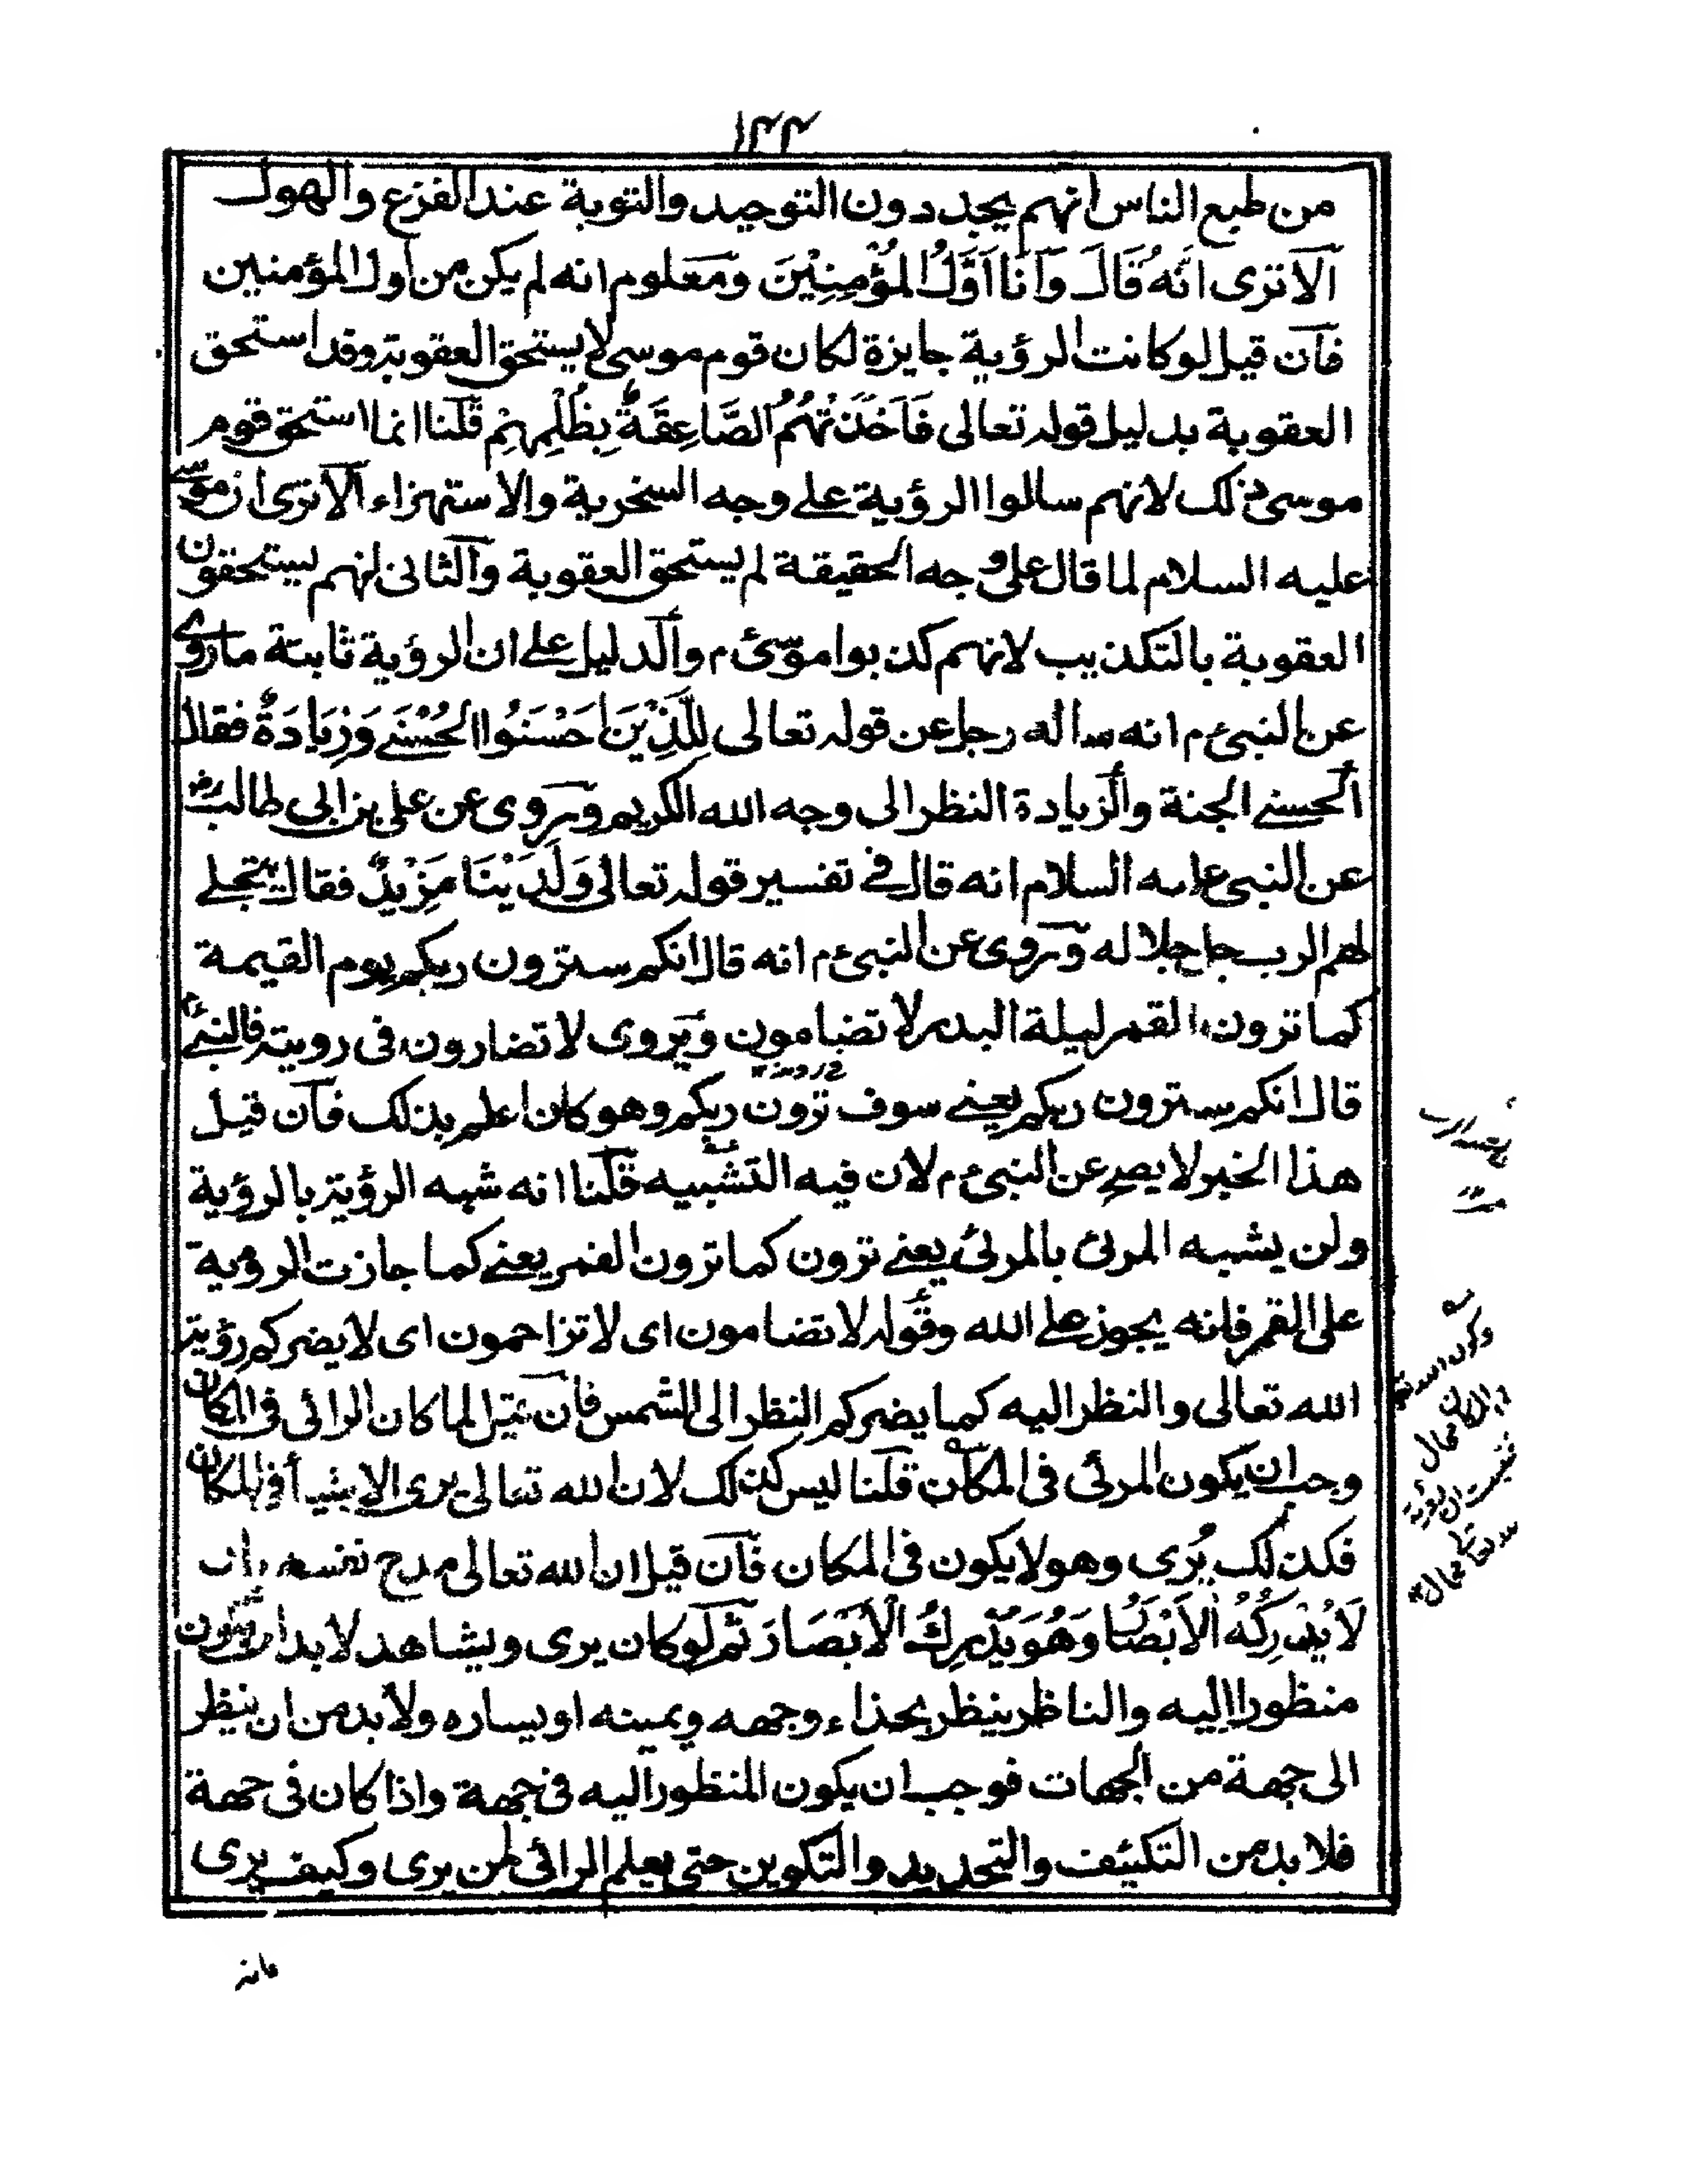 ١٤٤
من طبع الناس انهم يجددون التوحيد والتوبة عند الفزع والهول
الا ترى انه قَالَ وَاَنَا اَوَّلُ المُؤْمِنِيْنَ ومعلوم انه لم يكن من اول المؤمنين
فان قيل لو كانت الرؤية جايزة لكان قوم موسى لا يستحق العقوبة وقد استحق
العقوبة بدليل قوله تعالى فَاَخَذَتْهُمُ الصَّاعِقَةُ بِظُلْمِهِمْ قلنا انما استحق قوم
موسى ذلك لانهم سالوا الرؤية على وجه السخرية والاستهزاء الا ترى ان موسى
عليه السلام لما قال على وجه الحقيقة لم يستحق العقوبة والثانى انهم يستحقون
العقوبة بالتكذيب لانهم كذبوا موسىٰ ع م والدليل على ان الرؤية ثابتة ما روى
عن النبى ع م انه ساله رجل عن قوله تعالى لِلَّذِيْنَ اَحْسَنُوا الحُسْنَے وَزِيَادَةٌ فقال
الحسنے الجنة والزيادة النظر الى وجه الله الكريم وروى عن على بن ابى طالب رض
عن النبى عليه السلام انه قال فے تفسير قوله تعالى وَلَدَيْنَا مَزِيْدٌ فقال يتجلے
لهم الرب جل جلاله وروى عن النبى ع م انه قال انكم سترون ربكم يوم القيمة
كما ترون القمر ليلة البدر لا تضامون ويروى لا تضارون فى رويته فالنبے ع م
قال انكم سترون ربكم يعنے سوف ترون ربكم وهو كان اعلم بذلك فان قيل
هذا الخبر لا يصح عن النبى ع م لان فيه التشبيه قلنا انه شبه الرؤية بالرؤية
ولن يشبه المرئ بالمرئ يعنے ترون كما ترون القمر يعنے كما جازت الرؤية
على القمر فانه يجوز على الله وقوله لا تضامون اى لا تزاحمون اى لا يضركم رؤية
الله تعالى والنظر اليه كما يضركم النظر الى الشمس فان قيل لما كان الرائى فى المكان
وجب ان يكون المرئى فى المكان قلنا ليس كذلك لان الله تعالى يرى الاشياء فى المكان
فكذلك يُرى وهو لا يكون فى المكان فان قيل ان الله تعالى مدح نفسه بان
لَا يُدْرِكُهُ الاَبْصَارُ وَهُوَ يُدْرِكُ الْاَبْصَارَ ثم لو كان يرى ويشاهد لا بد ان يكون
منظورا اليه والناظر ينظر بحذاء وجهه ويمينه او يساره ولا بد من ان ينظر
الى جهة من الجهات فوجب ان يكون المنظور اليه فى جهة واذا كان فى جهة
فلا بد من التكييف والتحديد والتكوين حتى يعلم الرائى لمن يرى وكيف يرى